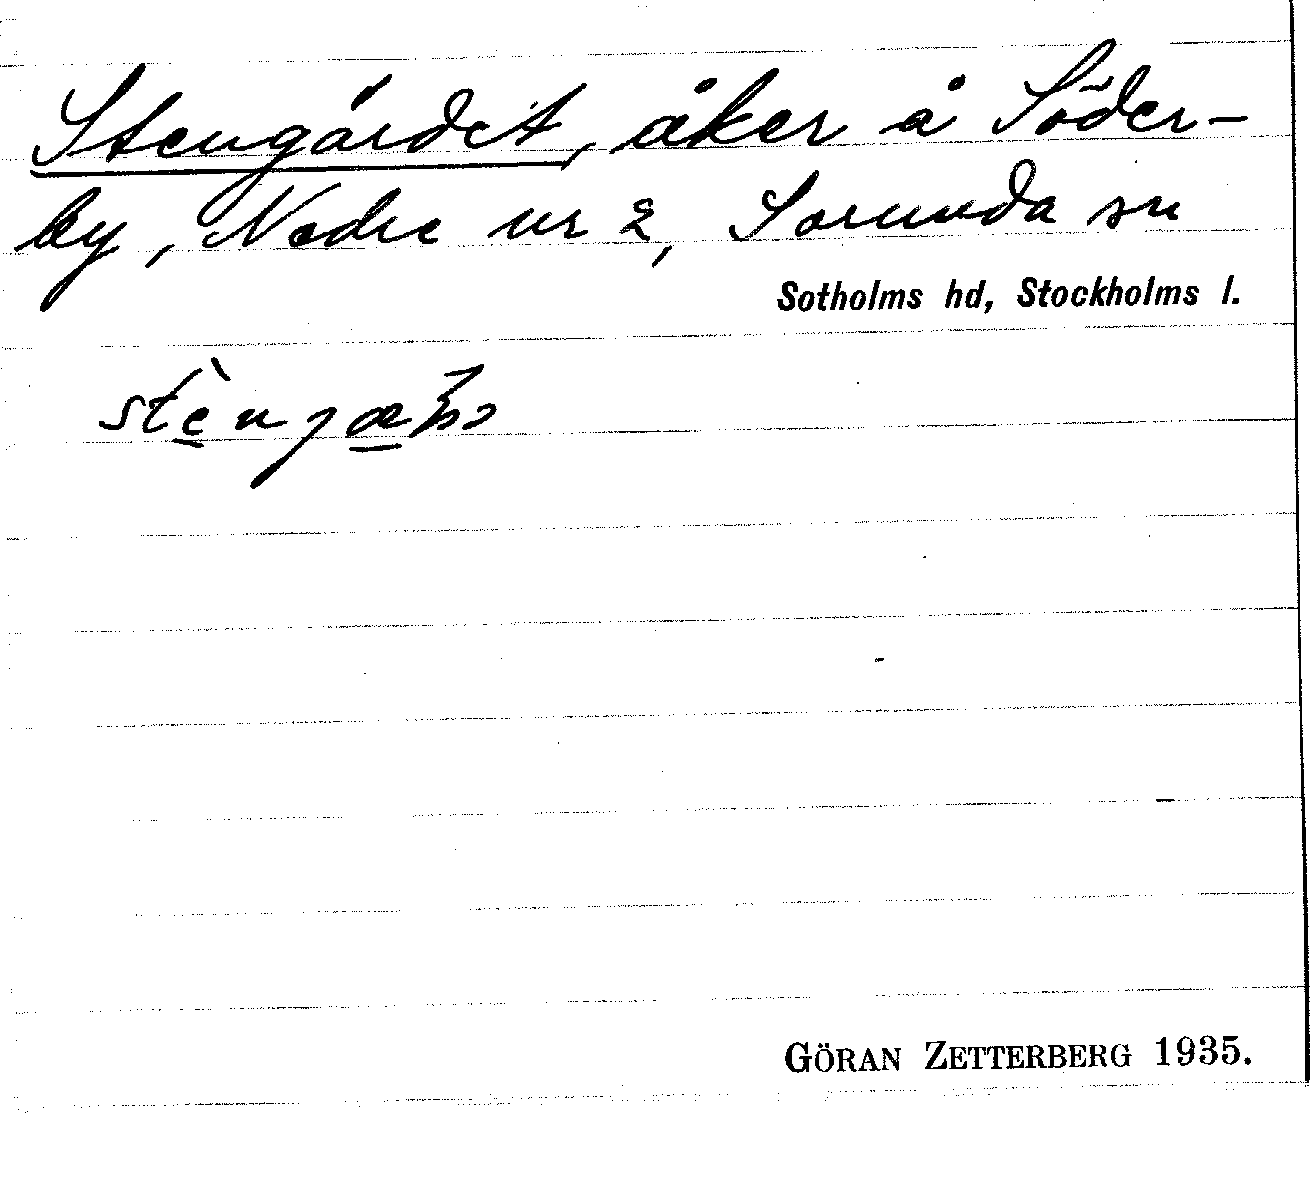 Stengärdet, åker å Söder-
by, Nedre nr 2, Sorunda sn
Sotholms hd, Stockholms l.
GÖRAN ZETTERBERG 1935.